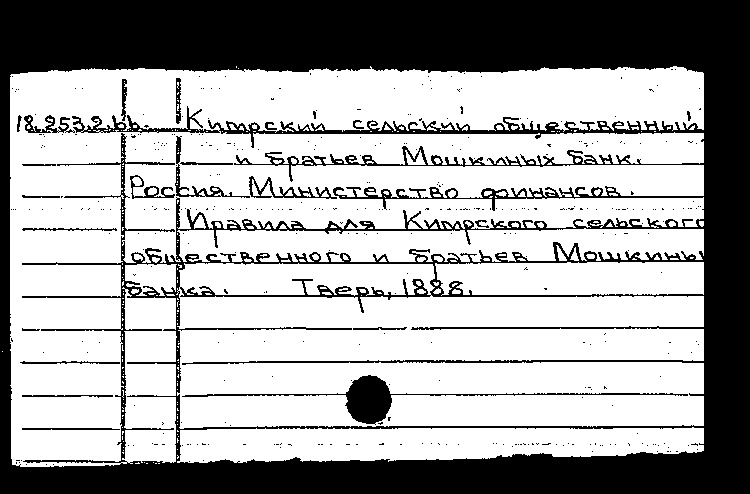 18.253.2.bb. Кимрский сельский общественный
и братьев Мошкиных банк.
Россия. Министерство финансов.
Правила для Кимрского сельского
общественного и братьев Мошкины
банка. Тверь, 1888.